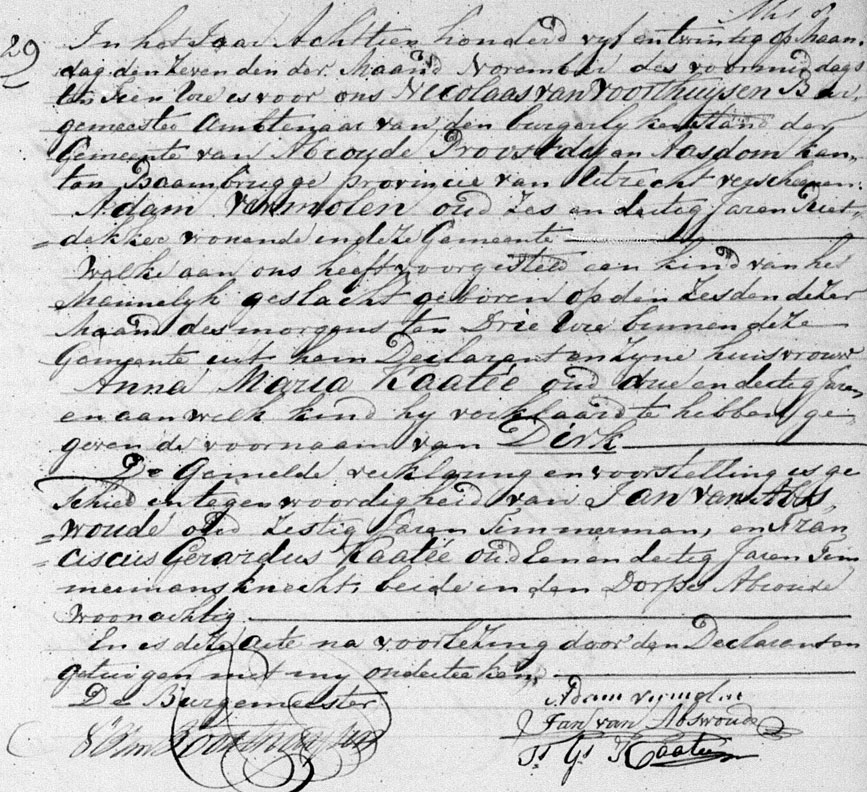 29
In het Jaar Achttien honderd vyf en twintig op Maan,
dag den Zevenden der Maand November des voormiddags
ten Tien Ure is voor ons Nicolaas van Voorthuysen Bur,
gemeester Ambtenaar van den burgerlyken stand der
Gemeente van Abcoude Proostdy en Aasdom kan,
ton Baambrugge provincie van Utrecht verschenen
Adam Vermolen oud Zes en dertig Jaren Riet,
=dekker wonende in deze Gemeente
Welke aan ons heeft voorgesteld een kind van het
Mannelyk geslacht geboren op den Zesden dezer
Maand des morgens ten Drie Ure binnen deze
Gemeente uit hem Declarant en Zyne huisvrouw
Anna Maria Kaatée oud drie en dertig Jaren
en aan welk kind hy verklaarde te hebben ge,
geven de voornaam van Dirk
De Gemelde verklaring en voorstelling is ge
schied in tegenwoordigheid van Jan van Abs,
=woude oud Zestig Jaren Timmerman, en Fran
=ciscus Gerardus Kaatée oud Een en dertig Jaren Tim
mermansknecht, beide in den Dorpe Abcoude
Woonachtig
En is deze acte na voorlezing door den Declarant en
getuigen met my onderteekend
De Burgemeester
Adam vermolen
Jan van Abswoude
N van Voorthuysen
Fs Gs Kaatee